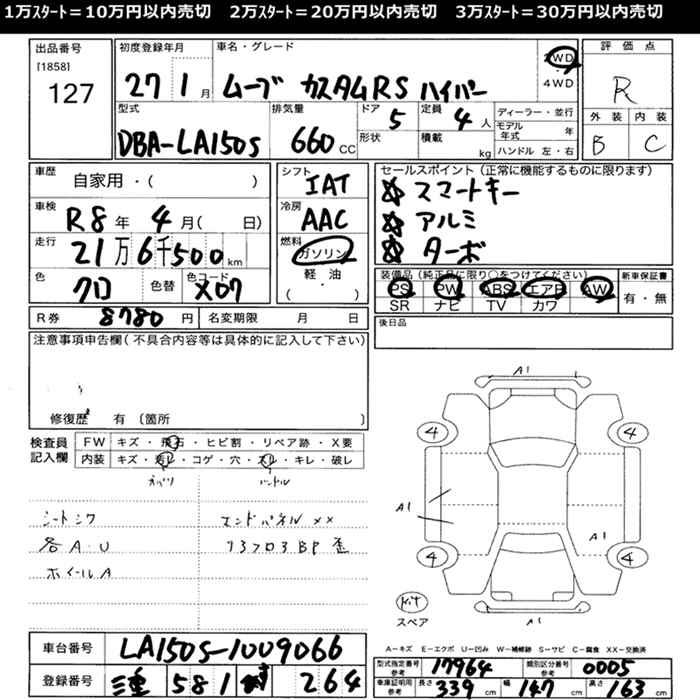 1万ｽﾀｰﾄ＝10万円以内売切　2万ｽﾀｰﾄ＝20万円以内売切　3万ｽﾀｰﾄ＝30万円以内売切
出品番号
[1858]
127
初度登録年月
27 1月
車名・グレード
ムーブ カスタムRS ハイパー
2WD
4WD
評価点
R
外装 内装
B C
型式
DBA-LA150S
排気量
660 CC
ドア 5
形状
定員 4人
積載 kg
ディーラー・並行
モデル年式 年
ハンドル 左・右
車歴
自家用・( )
車検
R8年 4月( 日)
走行
21万6千500km
色
クロ
色替
色コード
X07
シフト
IAT
冷房
AAC
燃料
ガソリン
軽・油
( ・ )
セールスポイント(正常に機能するものに限ります)
☆スマートキー
☆アルミ
☆ターボ
装備品(純正品に限り○をつけてください)
PS PW ABS エアB AW
SR ナビ TV カワ
新車保証書
有・無
R券 8780円
名変期限 月 日
後日品
注意事項申告欄(不具合内容等は具体的に記入して下さい)
修復歴 有〔箇所 〕
検査員記入欄
FW キズ・飛石・ヒビ割・リペア跡・X要
内装 キズ・汚レ・コゲ・穴・スレ・キレ・破レ
ハンドル
シートシワ
各A・U
ホイールA
エンドパネルXX
A1
4 4
A1
A1
4 4
Kit
スペア
A1
A－キズ E－エクボ U－凹み W－補修跡 S－サビ C－腐食 XX－交換済
車台番号 LA150S-1009066
登録番号 三重 581 264
型式指定番号参考 17964
類別区分番号参考 0005
車庫証明用参考 長さ 339cm 幅 147cm 高さ 163cm